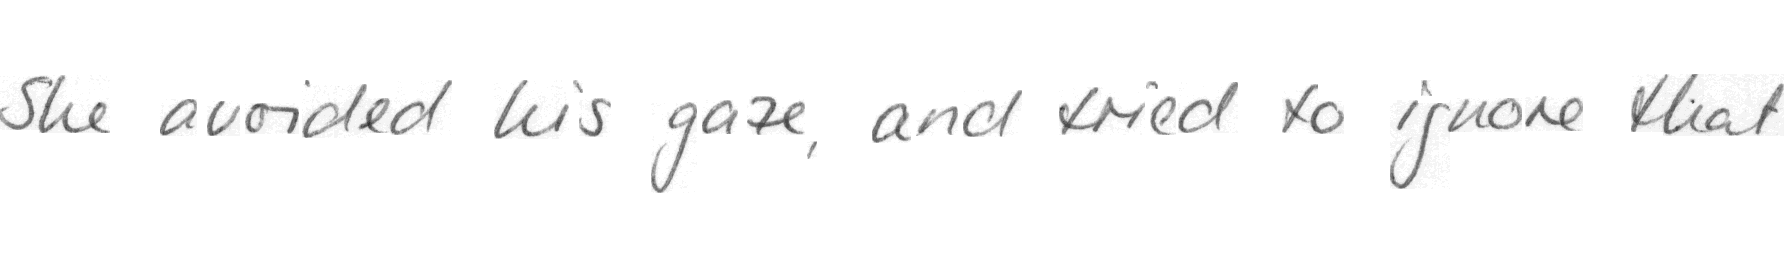 She avoided his gaze, and tried to ignore that